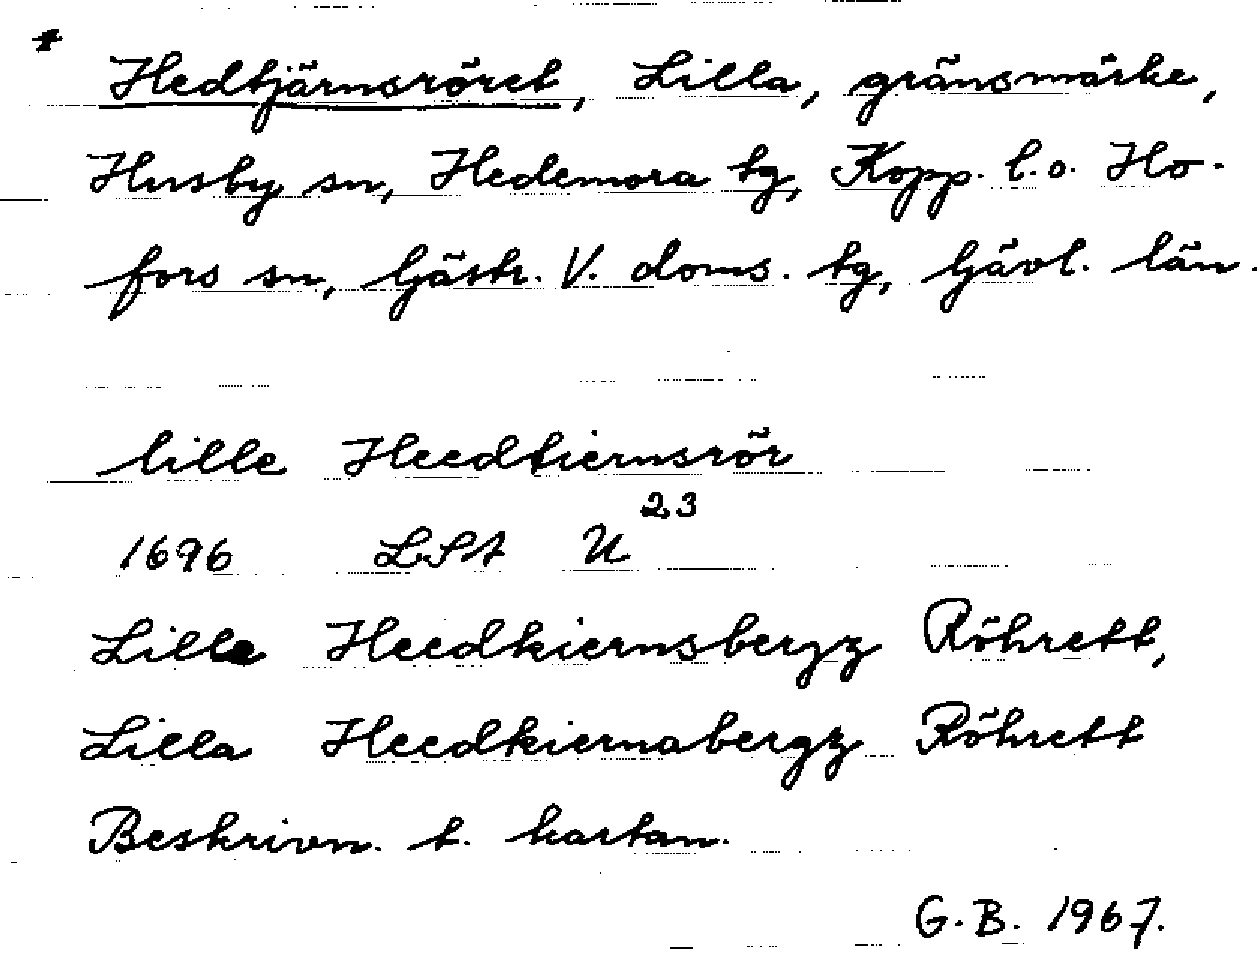 + Hedtjärnsröret, Lilla, gränsmärke,
Husby sn, Hedemora tg, Kopp. l.o. Ho-
fors sn, Gästr. V. doms. tg, Gävl. län.
lille Heedtiernsrör
1696 LSt U 23
Lille Heedkiernsbergz Röhrett,
Lilla Heedkiernabergz Röhrett
Beskrivn. t. kartan.
G.B. 1967.